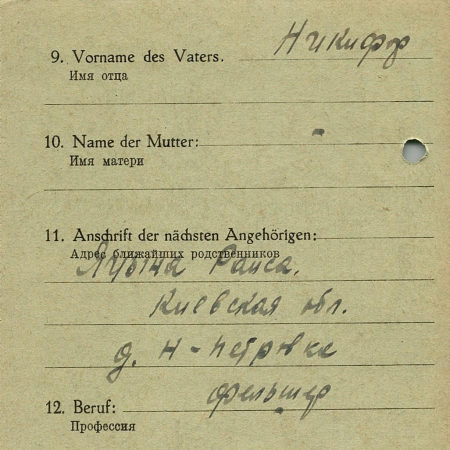 9. Vorname des Vaters. Никифор
Имя отца
10. Name der Mutter:
Имя матери
11. Anschrift der nächsten Angehörigen:
Адрес ближайших родственников
Раиса.
Киевская обл.
д. Н-Петровка
фельшер
12. Beruf:
Профессия